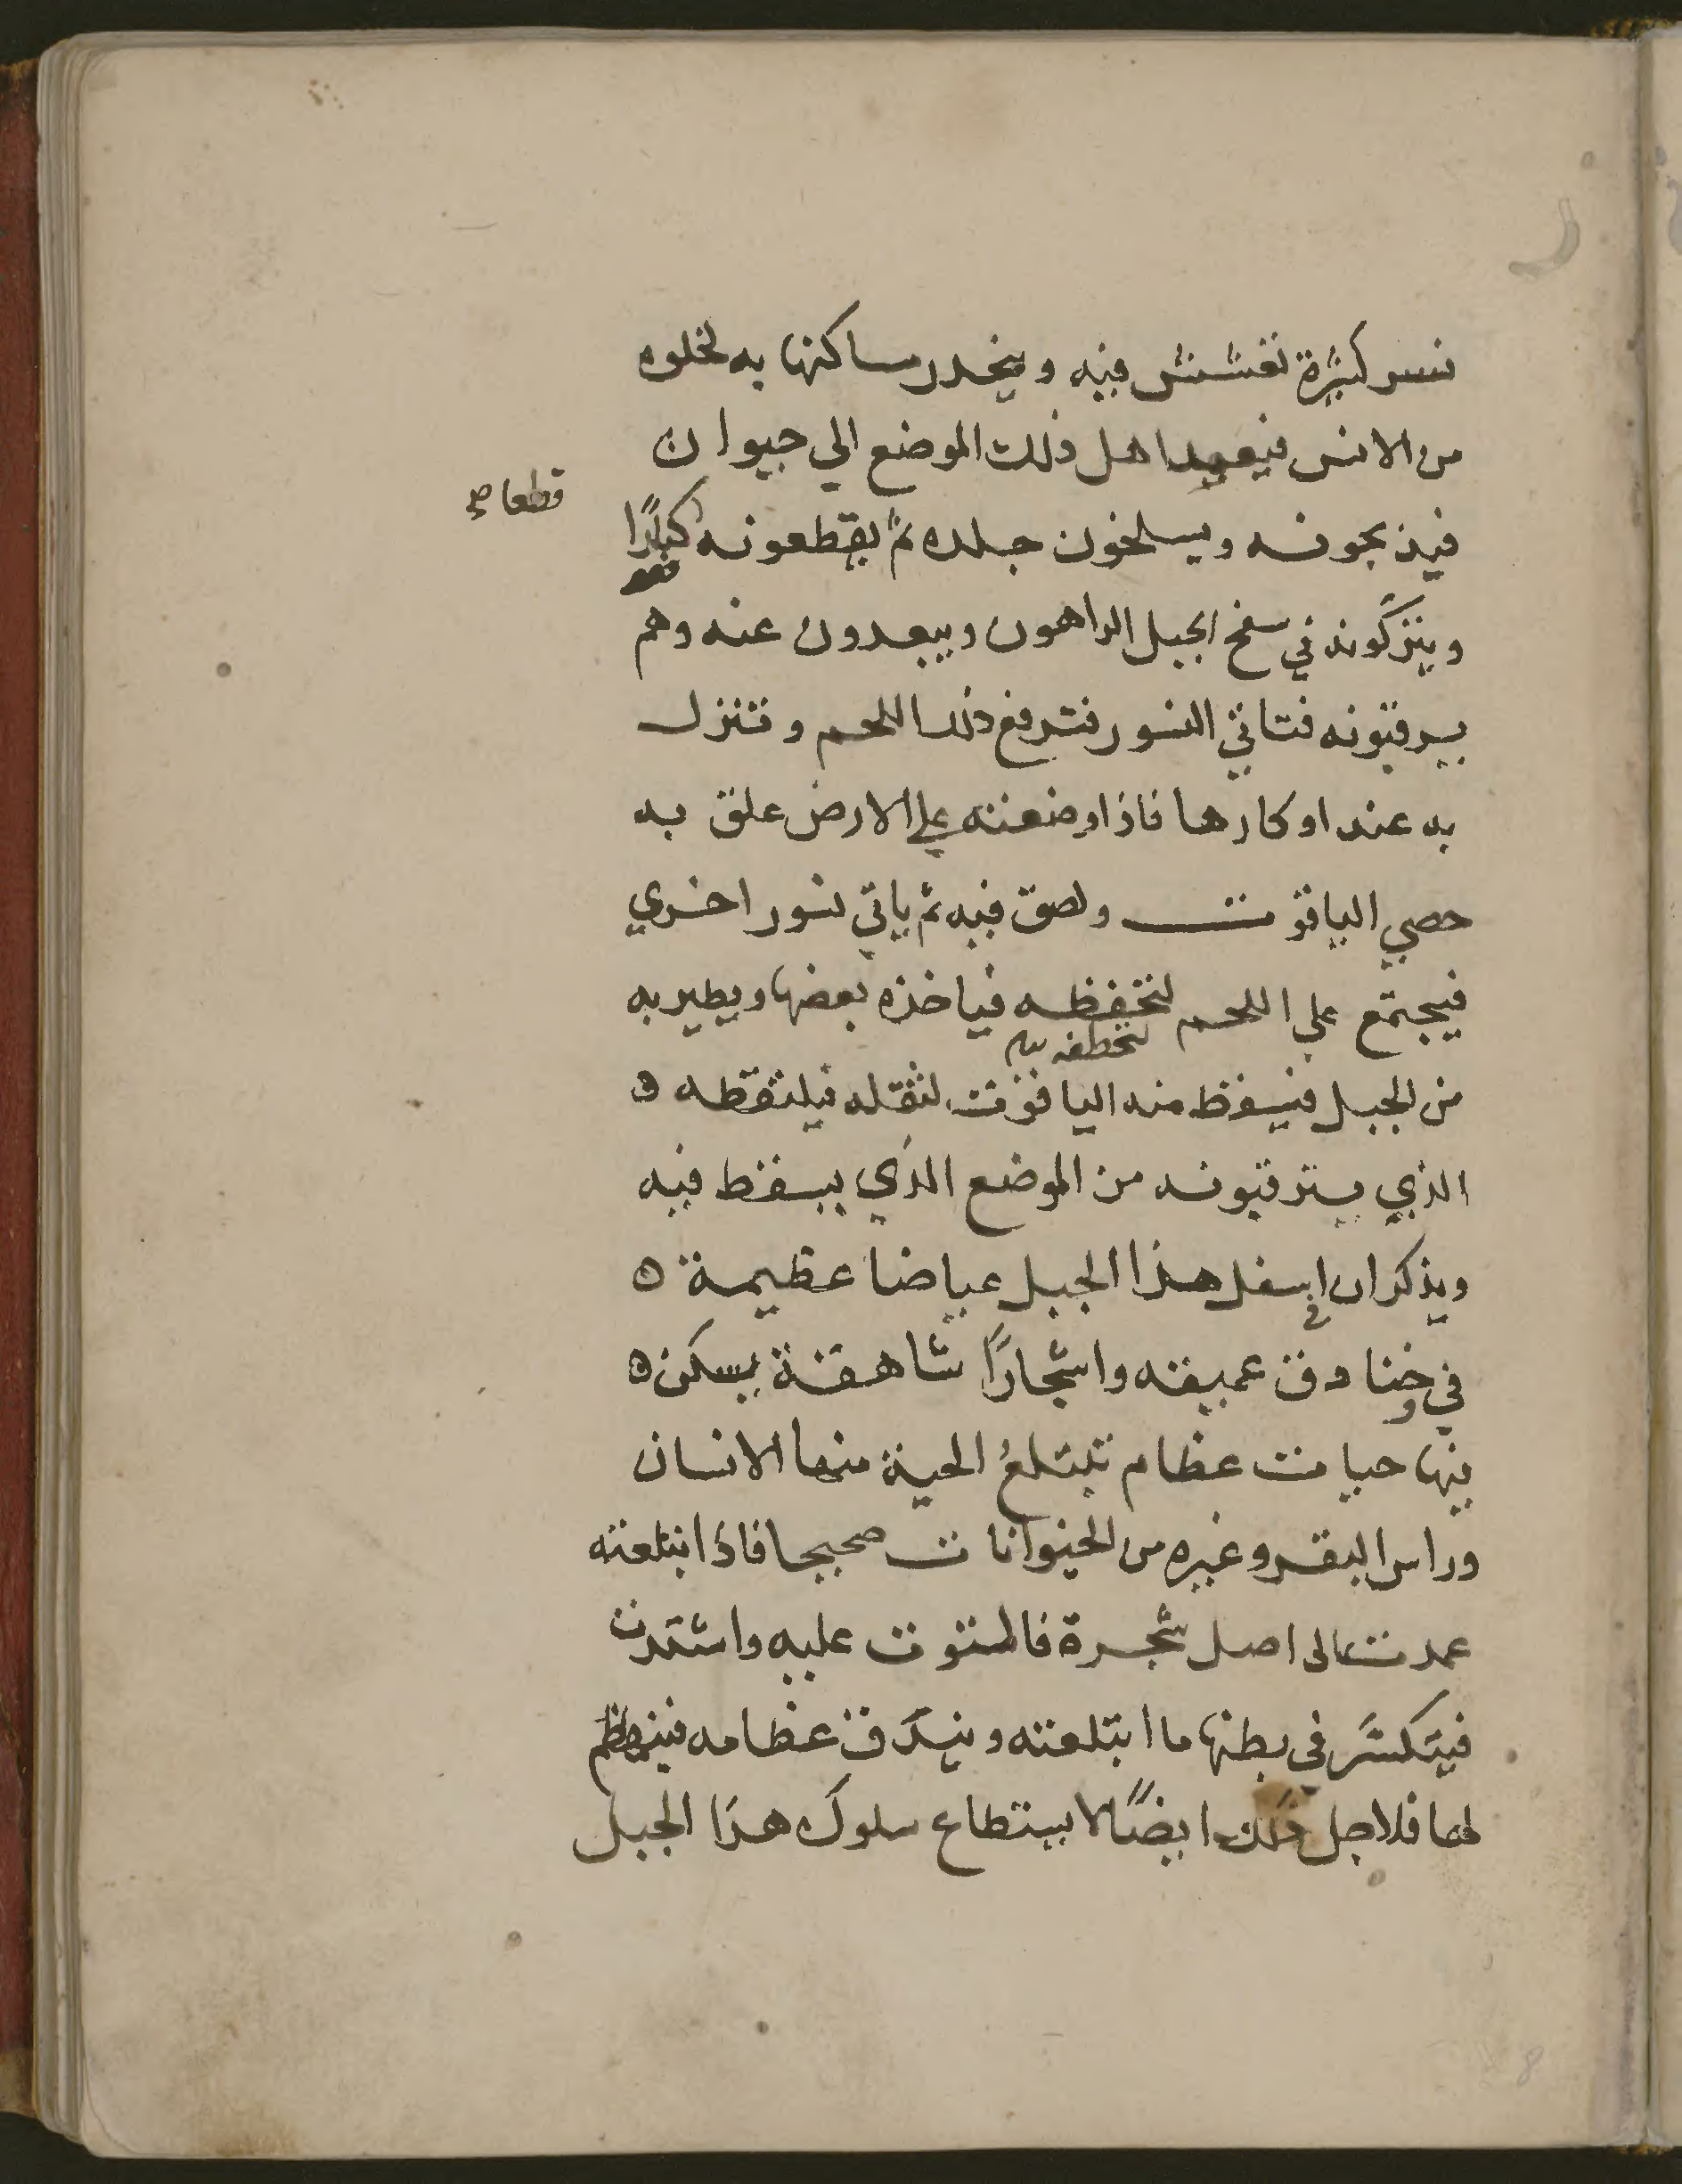 نسر كثيرة تغشش فيه ويتخدر مساكنها به لخلوه
من الانس فيعمد اهل ذلك الموضع الي حيوان
فيذبحونه ويسلخون جلده ثم يقطعونه كبارًا
قطعا صح
ويتركونه في سفح الجبل الراهون ويبعدون عنه وهم
يرقبونه فتاتي النسور فترفع ذلك اللحم وتنزل
به عند اوكارها فاذا وضعته علي الارض علق به
حصي الياقوت ولصق فيه ثم ياتي نسور اخري
فيجتمع علي اللحم لتخفظه فياخذه بعضها ويطير به
لتخطفه
من الجبل فيسقط منه الياقوت لثقله فيلتقطه ه
الذي يترقبونه من الموضع الذي يسقط فيه
ويذكر ان اسفل هذا الجبل غياضا عظيمة ه
في وخنادق عميقه واشجارًا شاهقة يسكن ه
فيها حيات عظام تبتلعُ الحية منها الانسان
وراس البقر وغيره من الحيوانات صحيحا فاذا ابتلعته
عمدت الى اصل شجرة فالتوت عليه واشتدت
فيتكسّر في بطنها ما ابتلعته ويندق عظامه فينهظم
لها فلاجل ذلك ايضًا لا يستطاع سلوك هذا الجبل